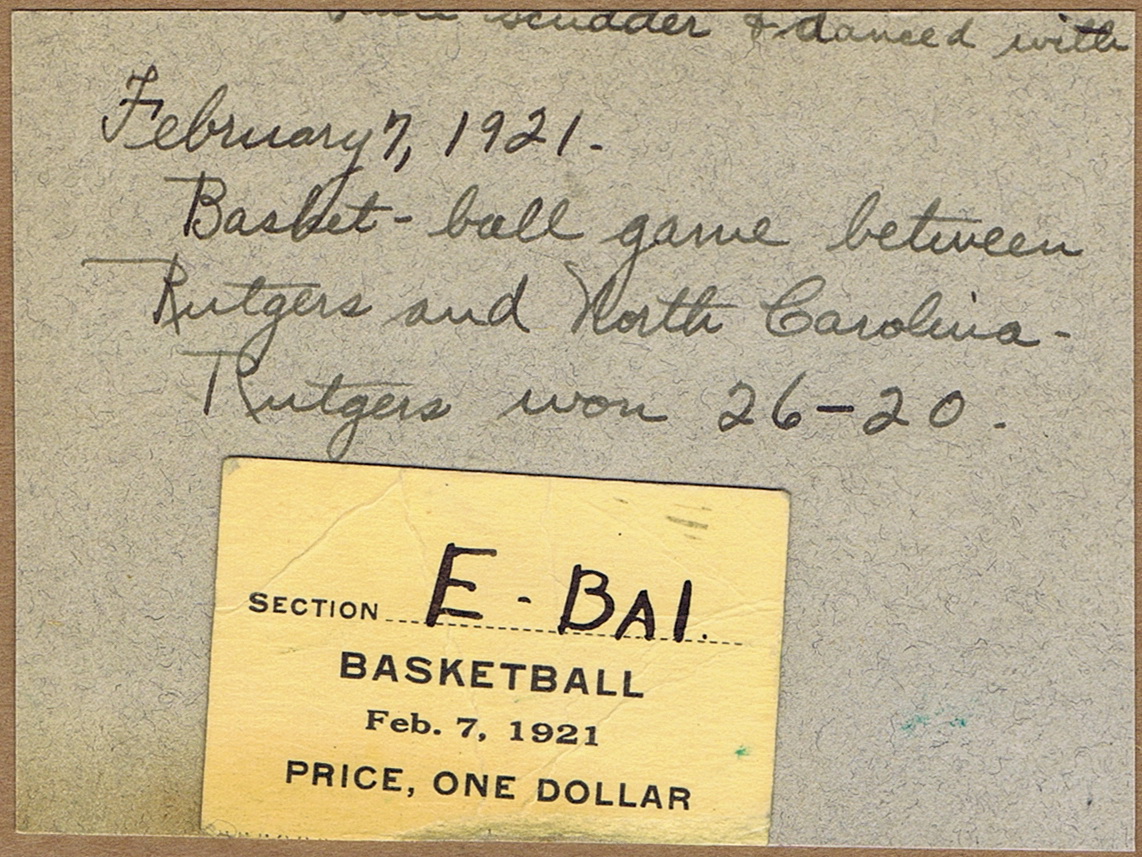 scudder & danced with
February 7, 1921.
Basket-ball game between
Rutgers and North Carolina-
Rutgers won 26-20.
SECTION E-BAl.
BASKETBALL
Feb. 7, 1921
PRICE, ONE DOLLAR